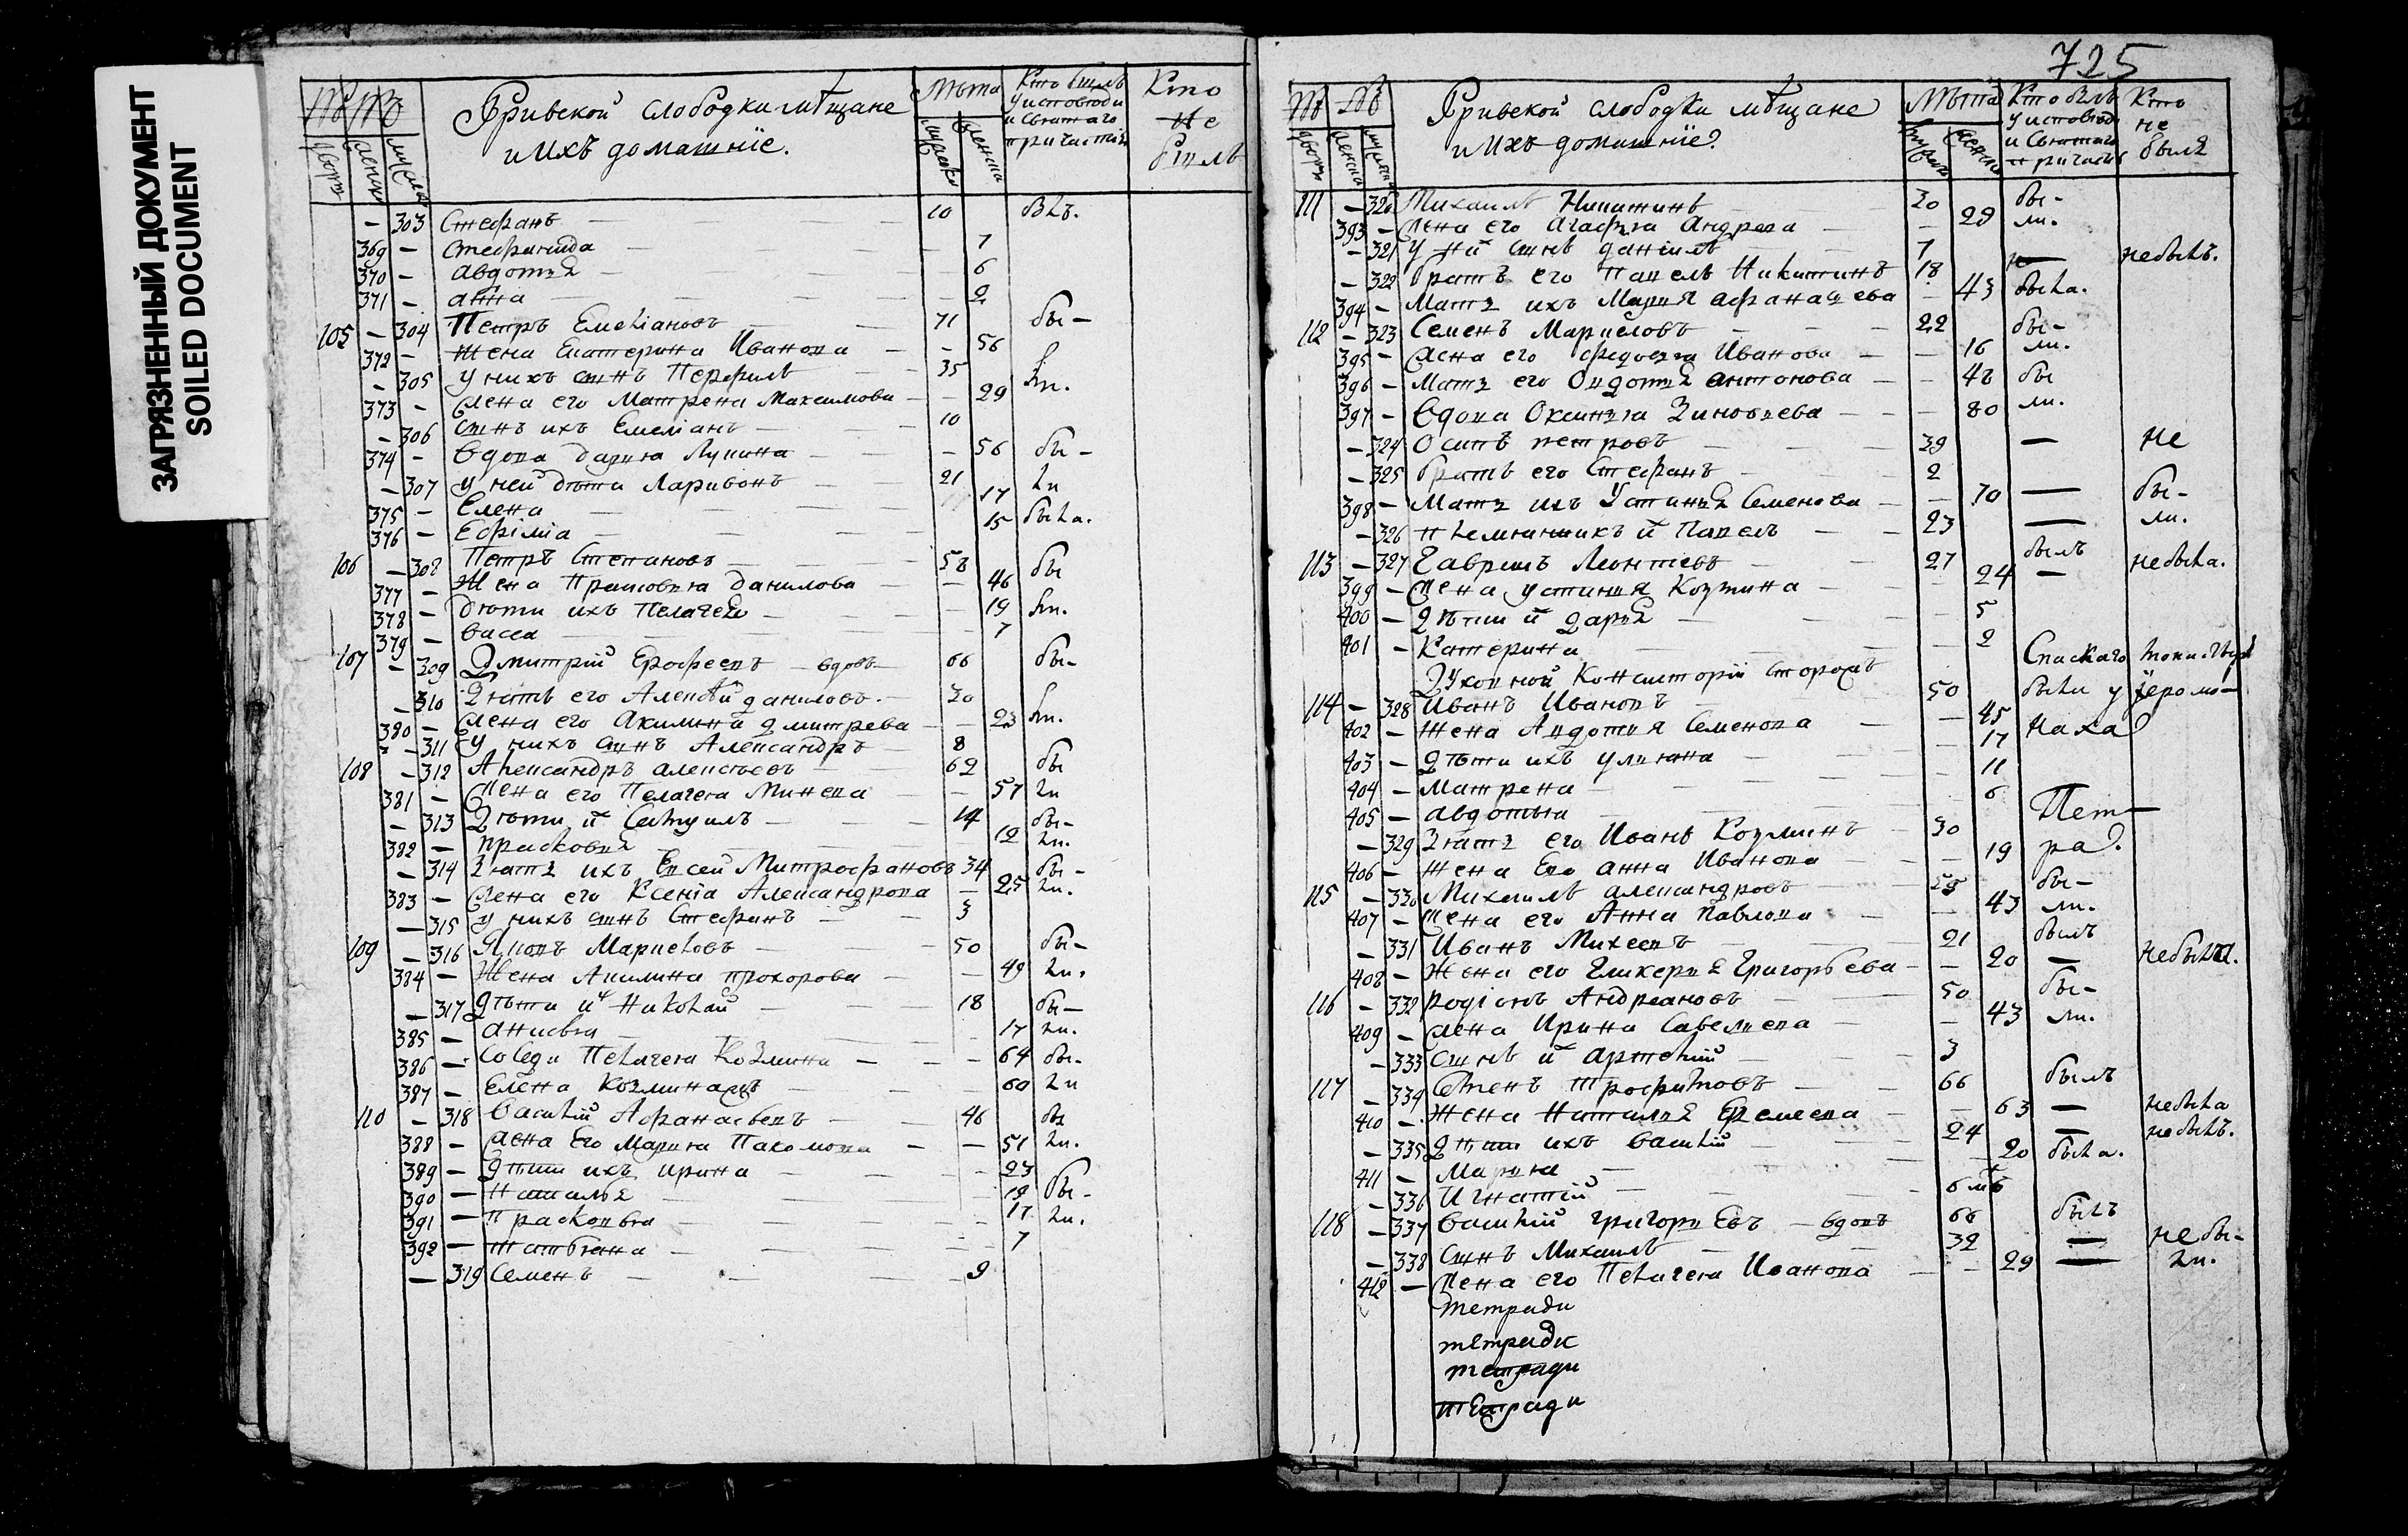 ЗАГРЯЗНЕННЫЙ ДОКУМЕНТ
SOILED DOCUMENT
слободки мѣщане
и ихъ домашніе.
Лѣта
Кто былъ
у исповѣди
и святаго
причастія
Кто
не
былъ
303 Стефанъ 10 былъ.
369 7
370 Авдотья 6
371 Анна 2
105 304 Петръ Емельяновъ 71 бы-
372 жена Екатерина Иванова 56
305 у нихъ сынъ Перфилъ 35 ли.
373 жена его Матрена Максимова 29
306 сынъ ихъ Емеліанъ 10
374 вдова Дарья Лукина 56 бы-
307 у ней дѣти Ларивонъ 21 ли
375 Елена 17
376 Ефіміа 15 была.
106 308 Петръ Степановъ 58 бы
377 Жена Прасковья Данилова 46
378 дѣти ихъ Пелагея 19 ли.
379 васса 7
107 309 Дмитрій Ерофеевъ вдовъ 66 бы-
310 зять его Алексѣй Даниловъ. 30
380 жена его Акилина Дмитрева 23 ли.
311 у нихъ сынъ Александръ 8
108 312 Александръ Алексѣевъ 62 бы
381 жена его Пелагея Минева 57 ли
313 Дѣти и Самуилъ 14 бы-
382 Прасковья 12 ли.
314 Зять ихъ Евсей Митрофановъ 34 бы-
383 жена его Ксеніа Александрова 25 ли.
315 у нихъ сынъ Стефанъ 3
109 316 Яковъ Маркеловъ 50 бы-
384 Жена Акилина Прохорова 49 ли.
317 Дѣти ихъ Николай 18 бы-
385 Анисья 17 ли.
386 Пелагея Козмина 64 бы-
387 Елена 60 ли
110 318 Василій Афанасьевъ 46 бы
388 жена Его Марина Пахомова 51 ли.
389 Дѣти ихъ Ирина 23
390 Наталья 19 бы-
391 Прасковья 17 ли.
392 Татьяна 7
319 Семенъ 9
725
слободки мѣщане
и ихъ домашніе
Лѣта
Кто былъ
у исповѣди
и святаго
Кто
не
былъ
111 320 Михаилъ Никитинъ 30 бы-
393 жена его Агафья Андреева 29 ли.
321 у ней сынъ Даніилъ 7 небылъ.
322 братъ его Павелъ Никитинъ 18
394 Мать ихъ Марія Афанасьева 43 была.
112 323 Семенъ Маркеловъ 22 бы-
395 жена его Федосья Иванова 16 ли.
396 Мать его Овдотья Антонова 48 бы
397 вдова Оксинья Зиновьева 80 ли.
324 Осипъ Петровъ 39 не
325 братъ его Стефанъ 2
398 Мать ихъ Устинья Семенова 70 бы-
326 племянникъ Павелъ 23 ли.
113 327 Гаврилъ Леонтьевъ 27 былъ
399 жена Устинья Козмина 24 небыла.
400 Дѣти и Дарья 5
401 Катерина 2
Духовной Консисторіи сторожъ
Спаскаго
114 328 Иванъ Ивановъ 50 были у Іеромо-
402 Жена Авдотья Семенова 45 наха
403 Дѣти ихъ Ульяна 17
404 Матрена 11
405 Авдотья 6
329 Зять его Иванъ Козминъ 30 Пет-
406 Жена Его Анна Иванова 19 ра.
115 330 Михаилъ Александровъ бы-
407 жена его Анна Павлова 43 ли.
331 Иванъ Михеевъ 21 былъ
408 Жена его Гликерья Григорьева 20 небыла.
116 332 Родіонъ Андреановъ 50 бы-
409 жена Ирина Савельева 43 ли.
333 сынъ и Артемій 3
117 334 Семенъ Трофимовъ 66 былъ
410 Жена Наталья Еремеева 63 небыла
335 Дѣти ихъ Василій 24 небылъ.
411 Марина 20 была.
336 Игнатій 6
118 337 Василій Григорьевъ вдовъ 66 былъ
338 Сынъ Михаилъ 32 не бы-
412 жена его Пелагея Иванова 29 ли.
тетради
тетради
тетради
тетради